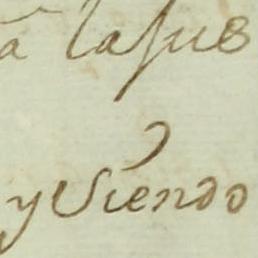 a la sus
y Viendo